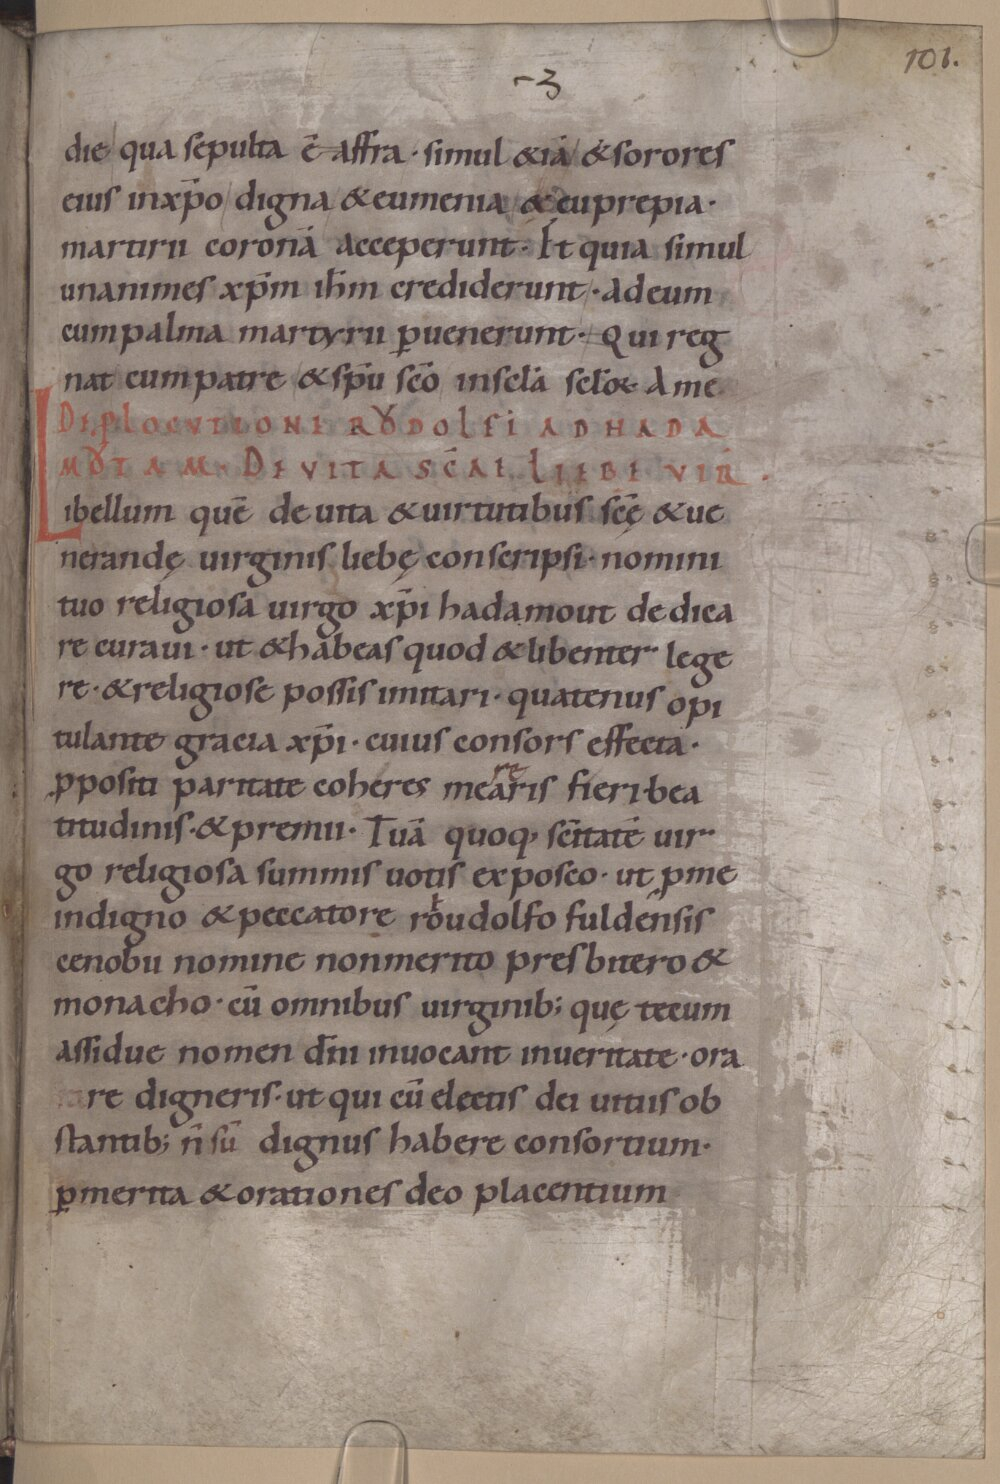 101.
die qua sepulta ē affra · simul & iā & sorores
eius in xp̄o digna & eumenia & euprepia ·
martirii coronā acceperunt · Et quia simul
unanimes xp̄m ih̄m crediderunt · ad eum
cum palma martyrii ꝑuenerunt · Qui reg
nat cum patre & sp̄u sc̄o in sc̄la sc̄loꝝ Ame
RVDOLFI AD HADA
MVTAM · DE VITA SC̄AE LIEBE VIR̄ .
Libellum quē de uita & uirtutibus sc̄ę & ue
nerandę uirginis liebę conscripsi · nomini
tuo religiosa uirgo xp̄i hadamout dedica
re curaui · ut & habeas quod & libenter lege
re · & religiose possis imitari · quatenus opi
tulante gracia xp̄i · cuius consors effecta ·
ꝓpositi paritate coheres mearis fieri bea
re
titudinis · & premii · Tuā quoq; sc̄itatē uir
go religiosa summis uotis exposco · ut ꝓ me
indigno & peccatore roudolfo fuldensis
cenobii nomine non merito presbitero &
monacho · cū omnibus uirginib; quę tecum
assidue nomen dn̄i inuocant in ueritate · ora
re digneris · ut qui cū electis dei uitiis ob
stantib; n̄ sū dignus habere consortium ·
ꝑ merita & orationes deo placentium